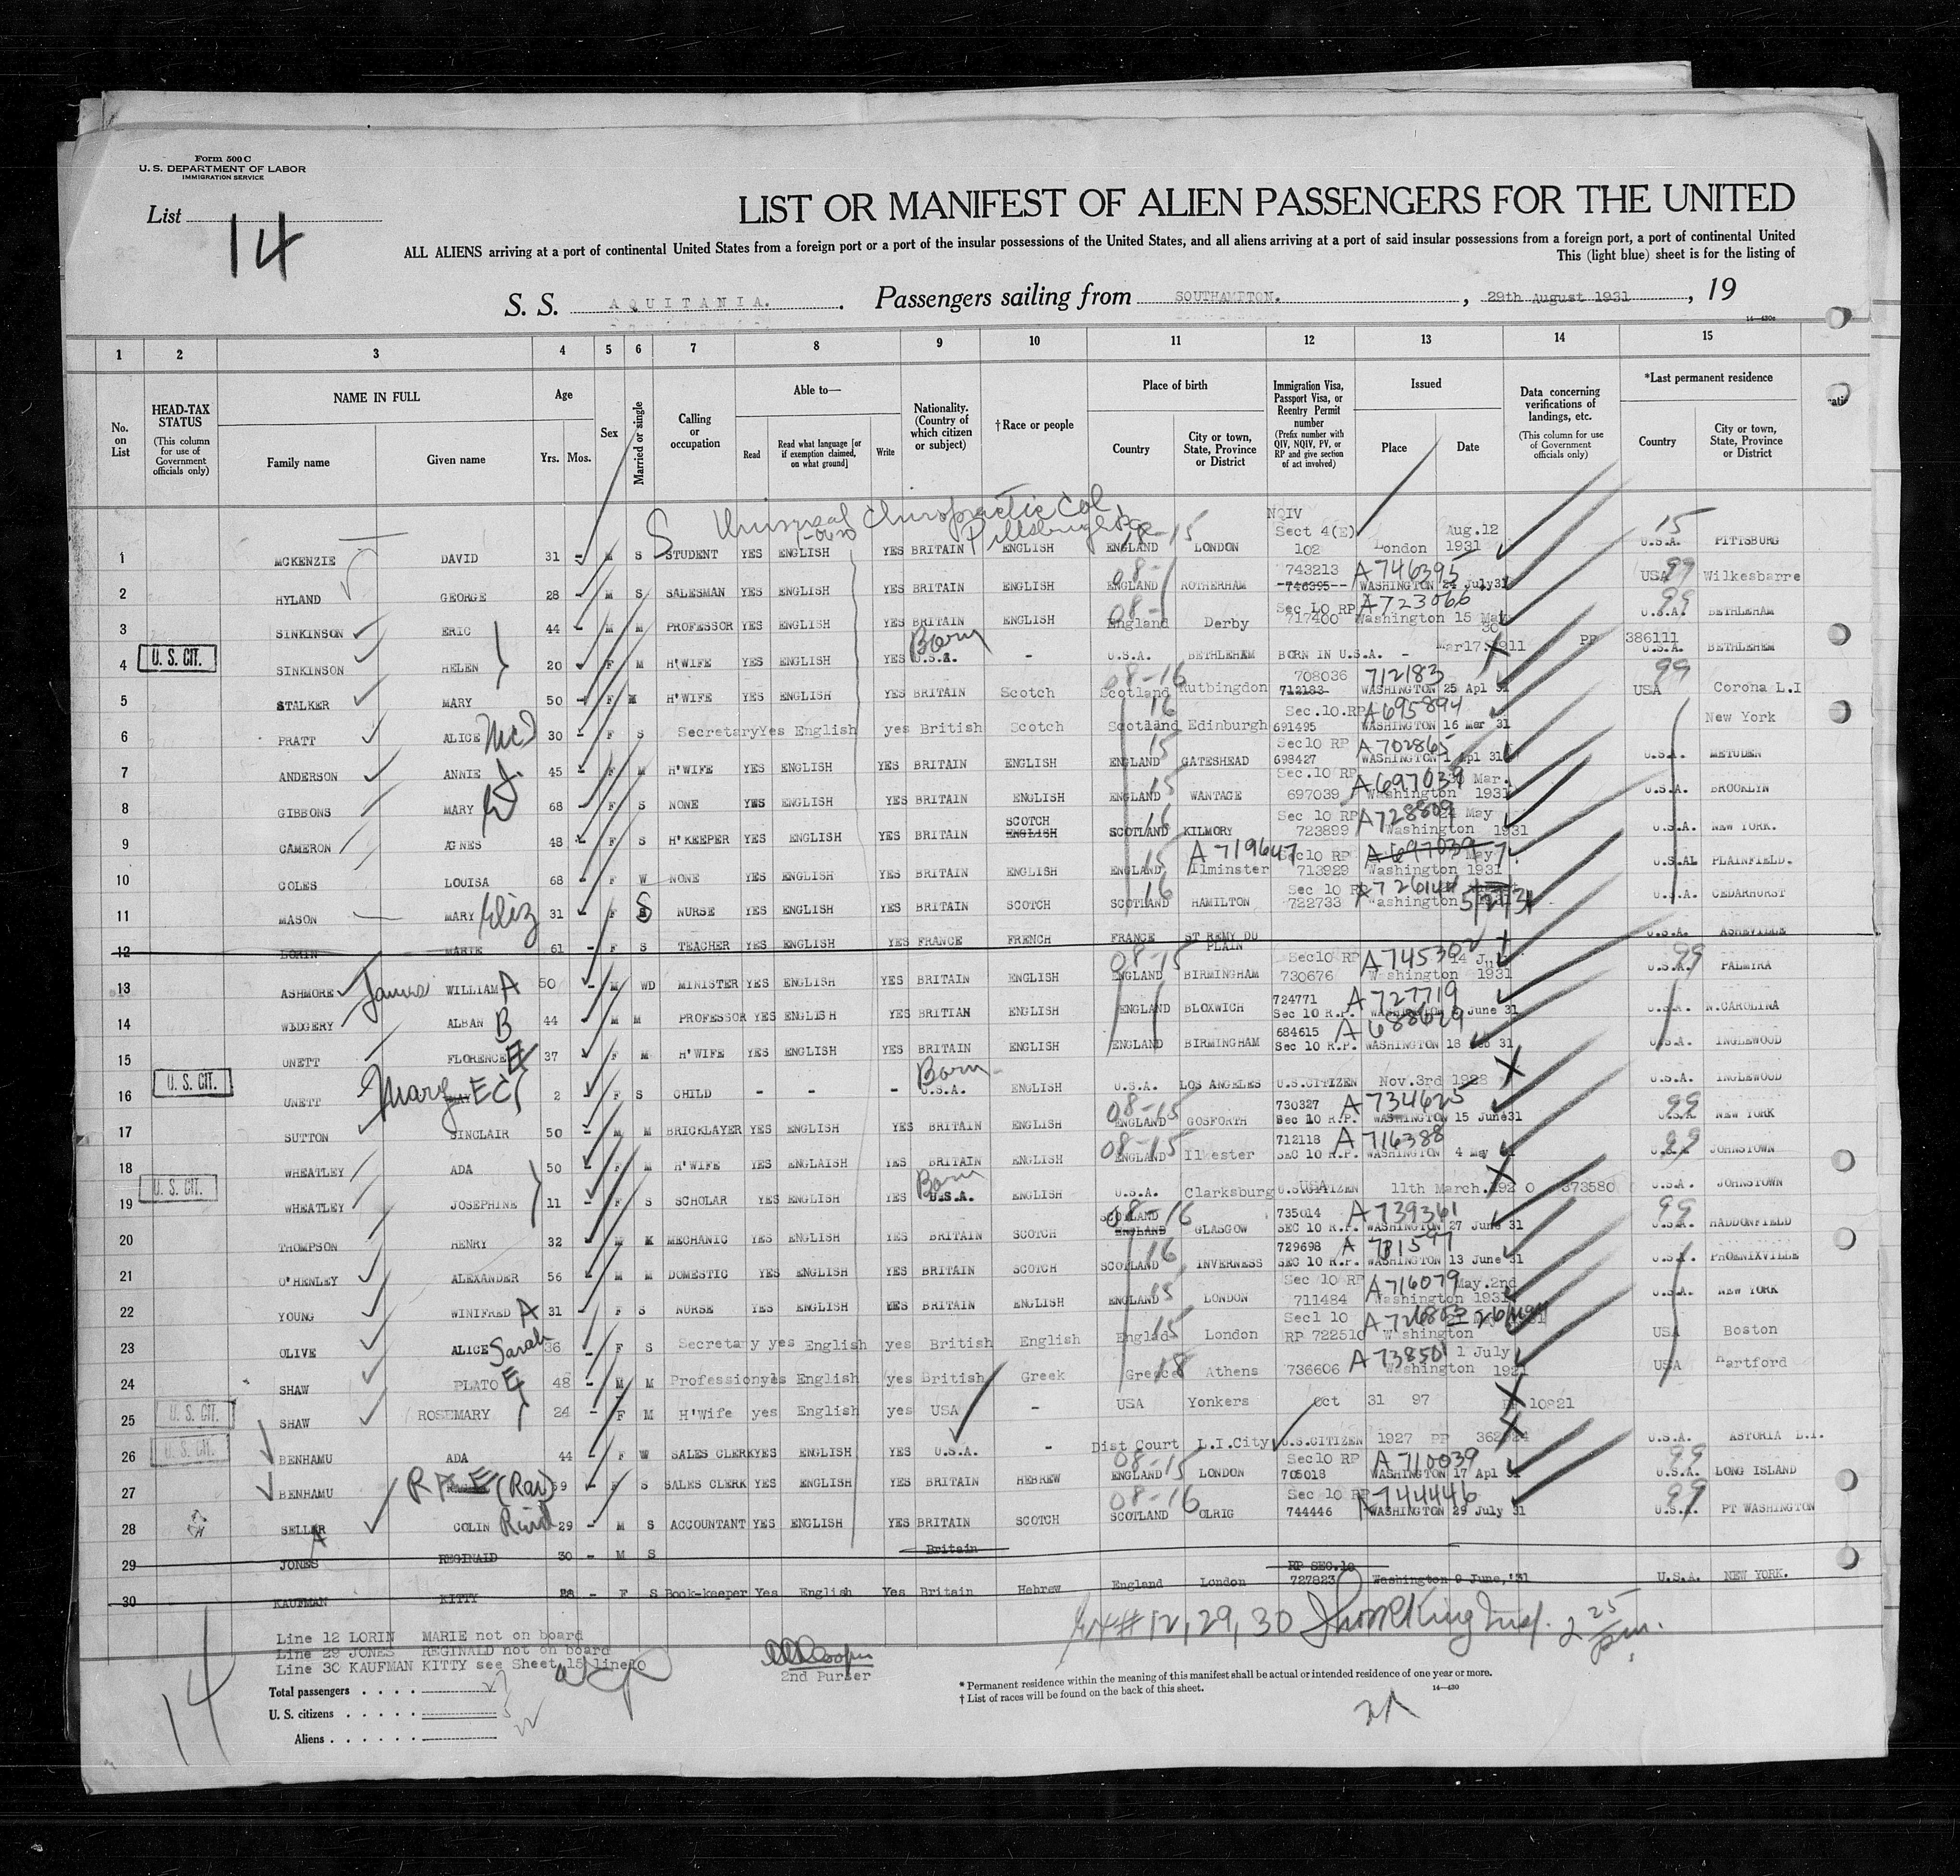 Form 500 C
U. S. DEPARTMENT OF LABOR
IMMIGRATION SERVICE
List 14
LIST OR MANIFEST OF ALIEN PASSENGERS FOR THE UNITED
ALL ALIENS arriving at a port of continental United States from a foreign port or a port of the insular possessions of the United States, and all aliens arriving at a port of said insular possessions from a foreign port, a port of continental United
This (light blue) sheet is for the listing of
S. S. AQUITANIA. Passengers sailing from SOUTHAMPTON. , 29th August 1931 , 19
14—430c
1 2 3 4 5 6 7 8 9 10 11 12 13 14 15
No. on List
HEAD-TAX STATUS (This column for use of Government officials only)
NAME IN FULL Family name Given name
Age Yrs. Mos.
Sex
Married or single
Calling or occupation
Able to— Read Read what language [or if exemption claimed, on what ground] Write
Nationality. (Country of which citizen or subject)
† Race or people
Place of birth Country City or town, State, Province or District
Immigration Visa, Passport Visa, or Reentry Permit number (Prefix number with QIV, NQIV, PV, or RP and give section of act involved)
Issued Place Date
Data concerning verifications of landings, etc. (This column for use of Government officials only)
*Last permanent residence Country City or town, State, Province or District
S Universal Chiropractic Col. Pittsburgh Pa
1 MCKENZIE DAVID 31 - M S STUDENT YES ENGLISH YES BRITAIN ENGLISH ENGLAND LONDON NQIV Sect 4(E) 102 London Aug.12 1931 15 U.S.A. PITTSBURG
2 HYLAND GEORGE 28 - M S SALESMAN YES ENGLISH YES BRITAIN ENGLISH 08- ENGLAND ROTHERHAM 743213 746395 A746395 WASHINGTON 24 July31 USA 99 Wilkesbarre
3 SINKINSON ERIC 44 - M M PROFESSOR YES ENGLISH YES BRITAIN ENGLISH 08- England Derby Sec 10 RP 717400 A723066 Washington 15 May 30 99 U.S.A. BETHLEHAM
4 U. S. CIT. SINKINSON HELEN 20 - F M H'WIFE YES ENGLISH YES Born U.S.A. - U.S.A. BETHLEHAM BORN IN U.S.A. - Mar17.1911 PP 386111 U.S.A. BETHLEHEM
5 STALKER MARY 50 - F M H'WIFE YES ENGLISH YES BRITAIN Scotch 08-16 Scotland Rutbingdon 708036 712183 712183 WASHINGTON 25 Apl 31 99 USA Corona L.I
6 PRATT ALICE McD 30 - F S Secretary Yes English yes British Scotch 16 Scotland Edinburgh Sec.10.RP 691495 A695894 WASHINGTON 16 Mar 31 New York
7 ANDERSON ANNIE J. 45 - F M H'WIFE YES ENGLISH YES BRITAIN ENGLISH 15 ENGLAND GATESHEAD Sec10 RP 698427 A702865 WASHINGTON 1 Apl 31 U.S.A. METUDEN
8 GIBBONS MARY 68 - F S NONE YES ENGLISH YES BRITAIN ENGLISH 15 ENGLAND WANTAGE Sec.10 RP 697039 A697039 Washington Mar. 1931 U.S.A. BROOKLYN
9 CAMERON AGNES 48 - F S H'KEEPER YES ENGLISH YES BRITAIN SCOTCH ENGLISH 16 SCOTLAND KILMORY Sec 10 RP 723899 A728809 Washington 24 May 1931 U.S.A. NEW YORK.
10 COLES LOUISA 68 - F W NONE YES ENGLISH YES BRITAIN ENGLISH 15 ENGLAND A719647 Ilminster Sec10 RP 713929 A697039 Washington May 1931 U.S.AL PLAINFIELD.
11 MASON MARY Eliz 31 - F S NURSE YES ENGLISH YES BRITAIN SCOTCH 16 SCOTLAND HAMILTON Sec 10 RP 722733 A726144 Washington 5/27/31 U.S.A. CEDARHURST
12 LORIN MARIE 61 - F S TEACHER YES ENGLISH YES FRANCE FRENCH FRANCE ST REMY DU PLAIN U.S.A. ASHEVILLE
13 ASHMORE James WILLIAM A 50 - M WD MINISTER YES ENGLISH YES BRITAIN ENGLISH 08-15 ENGLAND BIRMINGHAM Sec10 RP 730676 A745392 Washington 1931 99 U.S.A. PALMYRA
14 WEDGERY ALBAN B 44 - M M PROFESSOR YES ENGLISH YES BRITIAN ENGLISH ENGLAND BLOXWICH 724771 Sec 10 R.P. A727719 WASHINGTON June 31 U.S.A. N.CAROLINA
15 UNETT FLORENCE E 37 - F M H'WIFE YES ENGLISH YES BRITAIN ENGLISH ENGLAND BIRMINGHAM 684615 Sec 10 R.P. A688629 WASHINGTON 18 Feb 31 U.S.A. INGLEWOOD
16 U. S. CIT. UNETT Mary E C 2 - F S CHILD - - - Born U.S.A. ENGLISH U.S.A. LOS ANGELES U.S.CITIZEN Nov.3rd 1928 U.S.A. INGLEWOOD
17 SUTTON SINCLAIR 50 - M M BRICKLAYER YES ENGLISH YES BRITAIN ENGLISH 08-15 ENGLAND GOSFORTH 730327 Sec 10 R.P. A734625 WASHINGTON 15 June31 99 U.S.A NEW YORK
18 WHEATLEY ADA 50 - F M H'WIFE YES ENGLAISH YES BRITAIN ENGLISH 08-15 ENGLAND Ilkester 712118 SEC 10 R.P. A716388 WASHINGTON 4 May 31 99 U.S.A JOHNSTOWN
19 U. S. CIT. WHEATLEY JOSEPHINE 11 - F S SCHOLAR YES ENGLISH YES Born U.S.A. ENGLISH U.S.A. Clarksburg USA U.S.CITIZEN 11th March.192 0 373580 U.S.A. JOHNSTOWN
20 THOMPSON HENRY 32 - M MECHANIC YES ENGLISH YES BRITAIN SCOTCH 08-16 SCOTLAND ENGLAND GLASGOW 735014 SEC 10 R.P. A739361 WASHINGTON 27 June 31 99 U.S.A. HADDONFIELD
21 O'HENLEY ALEXANDER 56 - M M DOMESTIC YES ENGLISH YES BRITAIN SCOTCH 16 SCOTLAND INVERNESS 729698 SEC 10 R.P. A 731597 WASHINGTON 13 June 31 U.S.A. PHOENIXVILLE
22 YOUNG WINIFRED A 31 - F S NURSE YES ENGLISH YES BRITAIN ENGLISH 15 ENGLAND LONDON Sec 10 RP 711484 A716079 Washington May.2nd 1931 U.S.A. NEW YORK
23 OLIVE ALICE Sarah 36 - F S Secretary yes English yes British English 15 Englad London Sec1 10 RP 722510 Washington USA Boston
24 SHAW PLATO E 48 - M M Profession yes English yes British Greek 18 Greece Athens 736606 A738501 Washington 1 July 1921 USA Hartford
25 U. S. CIT. SHAW ROSEMARY 24 - F M H'Wife yes English yes USA - USA Yonkers Oct 31 97 PP 10821
26 U. S. CIT. BENHAMU ADA 44 - F W SALES CLERK YES ENGLISH YES U.S.A. - Dist Court L.I.City U.S.CITIZEN 1927 PP U.S.A. ASTORIA L.I.
27 BENHAMU RAE (Rae) 59 - F S SALES CLERK YES ENGLISH YES BRITAIN HEBREW 08-15 ENGLAND LONDON Sec10 RP 705018 A710039 WASHINGTON 17 Apl 31 99 U.S.A. LONG ISLAND
28 SELLAR COLIN 29 - M S ACCOUNTANT YES ENGLISH YES BRITAIN SCOTCH 08-16 SCOTLAND OLRIG Sec 10 RP 744446 A744446 WASHINGTON 29 July 31 99 U.S.A. PT WASHINGTON
29 JONES REGINALD 30 - M S Britain
30 KAUFMAN KITTY 28 - F S Book-keeper Yes English Yes Britain Hebrew England London RP SEC.10 727823 Washington 9 June,'31 U.S.A. NEW YORK.
# 12, 29, 30 2 25 pm.
Line 12 LORIN MARIE not on board
Line 29 JONES REGINALD not on board
Line 30 KAUFMAN KITTY see Sheet 15 line
2nd Purser
Total passengers . . . . 27
U. S. citizens . . . . . 5
Aliens . . . . . . . 22
14
* Permanent residence within the meaning of this manifest shall be actual or intended residence of one year or more.
† List of races will be found on the back of this sheet.
14—430